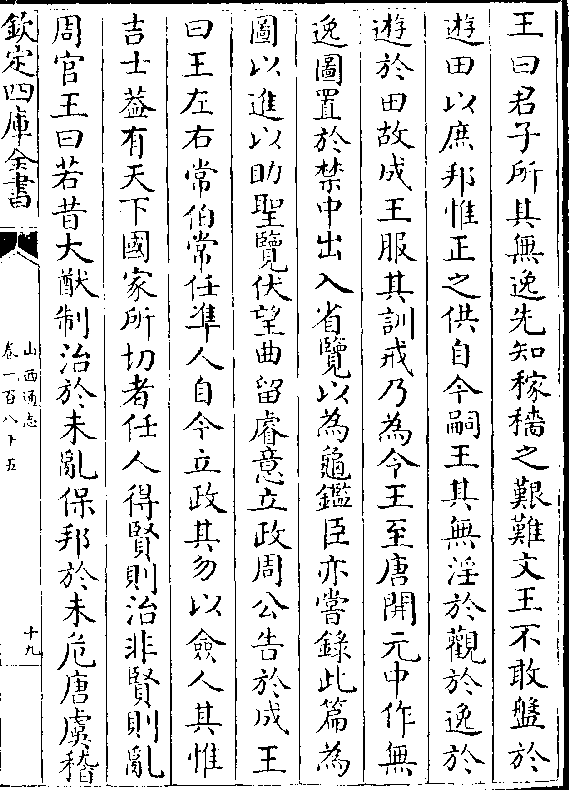 王曰君子所其無逸先知稼穡之艱難文王不敢盤於
遊田以庶邦惟正之供自今嗣王其無淫於觀於逸於
遊於田故成王服其訓戒乃為令王至唐開元中作無
逸圖置於禁中出入省覽以為龜鑑臣亦嘗錄此篇為
圖以進以助聖覽伏望曲留睿意立政周公告於成王
曰王左右常伯常任準人自今立政其勿以儉人其惟
吉士葢有天下國家所切者任人得賢則治非賢則亂
周官王曰若昔大猷制治於未亂保邦於未危唐虞稽
欽定四庫全書
山西通志
卷一百八十五
十九